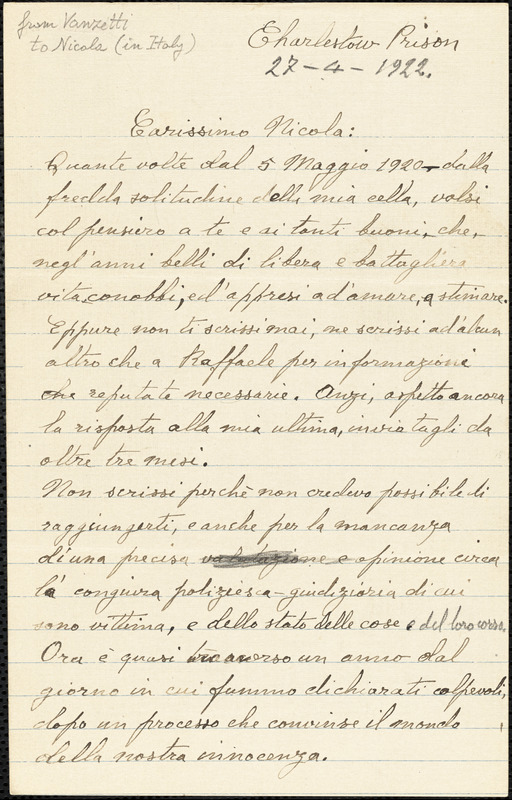 from Vanzetti
to Nicola (in Italy)
Charlestow Prison
27-4-1922.
Carissimo Nicola:
Quante volte dal 5 Maggio 1920- dalla
fredda solitudine della mia cella, volsi
col pensiero a te e ai tanti buoni, che,
negl'anni belli di libera e battagliera
vita conobbi, ed'appresi ad'amare, a stimare.
Eppure non ti scrissi mai, ne scrissi ad'alcun
altro che a Raffaele per informazioni
che reputate necessarie. Anzi, aspetto ancora
la risposta alla mia ultima, inviatagli da
oltre tre mesi.
Non scrissi perchè non credevo possibile di
raggiungerti, e anche per la mancanza
di'una precisa valutazione e opinione circa
la congiura poliziesca-giudiziaria di cui
sono vittima, e dello stato delle cose e del loro corso.
Ora è quasi un anno dal
giorno in cui fummo dichiarati colpevoli,
dopo un processo che convinse il mondo
della nostra innocenza.